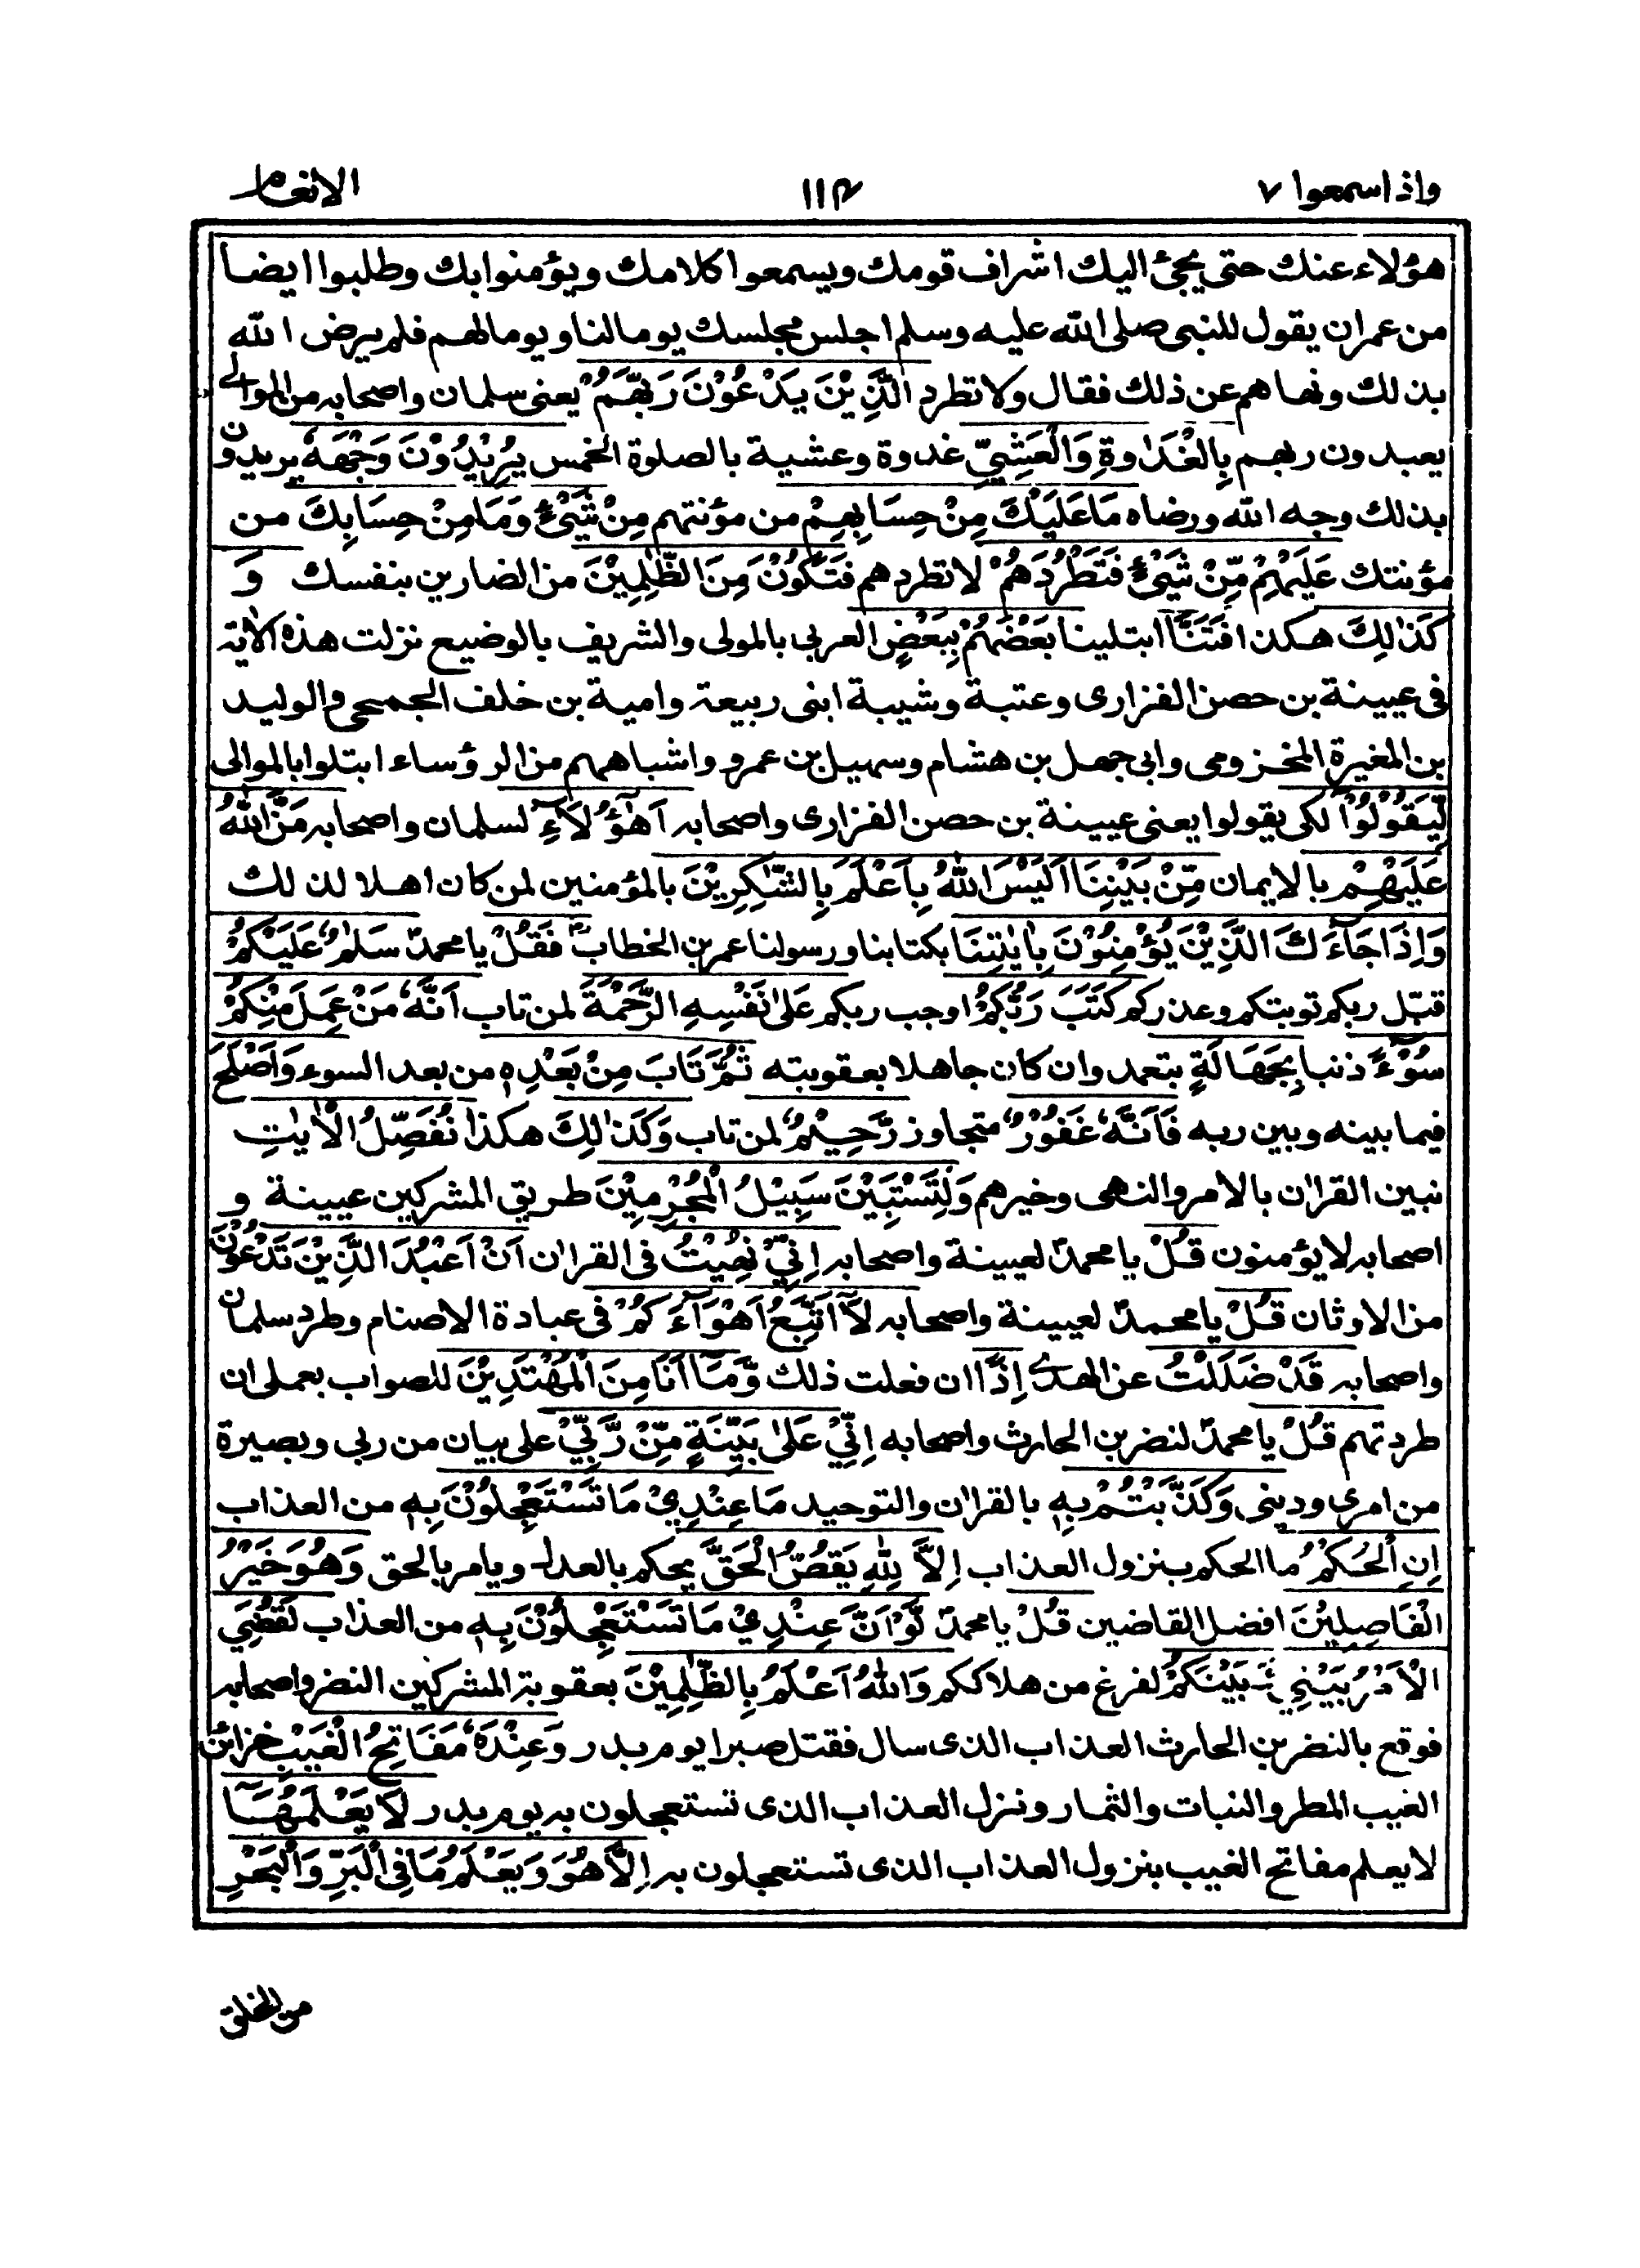 واذا سمعوا ٧
١١٤
الانعام
هؤلاء عنك حتى يجئ اليك اشراف قومك ويسمعوا كلامك ويؤمنوا بك وطلبوا ايضا
من عمران يقول للنبى صلى الله عليه وسلم اجلس مجلسك يوما لنا ويوما لهم فلم يرض الله
بذلك ونهاهم عن ذلك فقال ولا تطرد الَّذِيْنَ يَدْعُوْنَ رَبَّهُمْ يعنى سلمان واصحابه من الموالى
يعبدون ربهم بِالْغَدٰوةِ وَالْعَشِيِّ غدوة وعشية بالصلوة الخمس يُرِيْدُوْنَ وَجْهَهٗ يريدون
بذلك وجه الله ورضاه مَا عَلَيْكَ مِنْ حِسَابِهِمْ من مؤنتهم مِنْ شَيْءٍ وَمَا مِنْ حِسَابِكَ من
مؤنتك عَلَيْهِمْ مِّنْ شَيْءٍ فَتَطْرُدَهُمْ لا تطردهم فَتَكُوْنَ مِنَ الظّٰلِمِيْنَ من الضارين بنفسك وَ
كَذٰلِكَ هكذا فَتَنَّا ابتلينا بَعْضَهُمْ بِبَعْضٍ العربى بالمولى والشريف بالوضيع نزلت هذه الاية
فى عيينة بن حصن الفزارى وعتبة وشيبة ابنى ربيعة وامية بن خلف الجمحى والوليد
بن المغيرة المخزومى وابى جهل بن هشام وسهيل بن عمرو واشباههم من الرؤساء ابتلوا بالموالى
لِّيَقُوْلُوْا لكى يقولوا يعنى عيينة بن حصن الفزارى واصحابه اَهٰٓؤُلَآءِ لسلمان واصحابه مَنَّ اللهُ
عَلَيْهِمْ بالايمان مِّنْ بَيْنِنَا اَلَيْسَ اللهُ بِاَعْلَمَ بِالشّٰكِرِيْنَ بالمؤمنين لمن كان اهلا لذلك
وَاِذَا جَآءَكَ الَّذِيْنَ يُؤْمِنُوْنَ بِاٰيٰتِنَا بكتابنا ورسولنا عمر بن الخطاب فَقُلْ يا محمدؐ سَلٰمٌ عَلَيْكُمْ
قبّل ربكم توبتكم وعذركم كَتَبَ رَبُّكُمْ اوجب ربكم عَلٰى نَفْسِهِ الرَّحْمَةَ لمن تاب اَنَّهٗ مَنْ عَمِلَ مِنْكُمْ
سُوْٓءً ذنبا بِجَهَالَةٍ بتعمد وان كان جاهلا بعقوبته ثُمَّ تَابَ مِنْ بَعْدِهٖ من بعد السوء وَاَصْلَحَ
فيما بينه وبين ربه فَاَنَّهٗ غَفُوْرٌ متجاوز رَّحِيْمٌ لمن تاب وَكَذٰلِكَ هكذا نُفَصِّلُ الْاٰيٰتِ
نبين القراٰن بالامر والنهى وخبرهم وَلِتَسْتَبِيْنَ سَبِيْلُ الْمُجْرِمِيْنَ طريق المشركين عيينة و
اصحابه لا يؤمنون قُلْ يا محمدؐ لعيينة واصحابه اِنِّيْ نُهِيْتُ فى القراٰن اَنْ اَعْبُدَ الَّذِيْنَ تَدْعُوْنَ
من الاوثان قُلْ يا محمدؐ لعيينة واصحابه لَآ اَتَّبِعُ اَهْوَآءَكُمْ فى عبادة الاصنام وطرد سلمان
واصحابه قَدْ ضَلَلْتُ عن الهدى اِذًا ان فعلت ذلك وَّمَآ اَنَا مِنَ الْمُهْتَدِيْنَ للصواب بعملى ان
طردتهم قُلْ يا محمدؐ لنضر بن الحارث واصحابه اِنِّيْ عَلٰى بَيِّنَةٍ مِّنْ رَّبِّيْ على بيان من ربى وبصيرة
من امرى ودينى وَكَذَّبْتُمْ بِهٖ بالقراٰن والتوحيد مَا عِنْدِيْ مَا تَسْتَعْجِلُوْنَ بِهٖ من العذاب
اِنِ الْحُكْمُ ما الحكم بنزول العذاب اِلَّا لِلّٰهِ يَقُصُّ الْحَقَّ يحكم بالعدل ويامر بالحق وَهُوَ خَيْرُ
الْفَاصِلِيْنَ افضل القاضين قُلْ يا محمدؐ لَّوْ اَنَّ عِنْدِيْ مَا تَسْتَعْجِلُوْنَ بِهٖ من العذاب لَقُضِيَ
الْاَمْرُ بَيْنِيْ وَبَيْنَكُمْ لفرغ من هلاككم وَاللهُ اَعْلَمُ بِالظّٰلِمِيْنَ بعقوبة المشركين النضر واصحابه
فوقع بالنضر بن الحارث العذاب الذى سال فقتل صبرا يوم بدر وَعِنْدَهٗ مَفَاتِحُ الْغَيْبِ خزائن
الغيب المطر والنبات والثمار ونزل العذاب الذى تستعجلون به يوم بدر لَا يَعْلَمُهَآ
لا يعلم مفاتح الغيب بنزول العذاب الذى تستعجلون به اِلَّا هُوَ وَيَعْلَمُ مَا فِى الْبَرِّ وَالْبَحْرِ
من الخلق